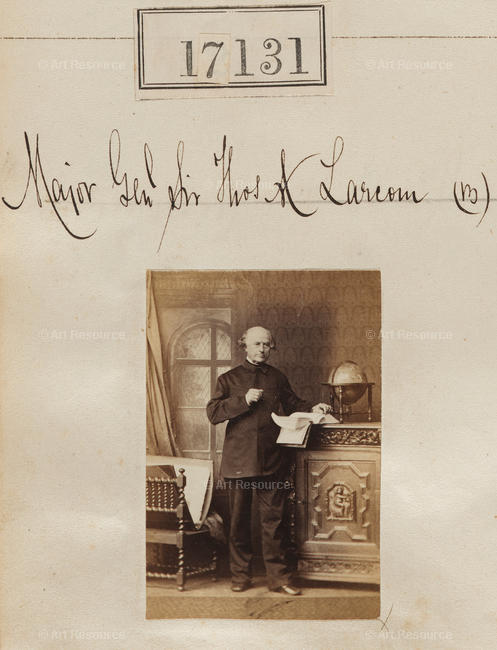 17131
Major Genl Sir Thos A Larcom (B)
© Art Resource
© Art Resource
© Art Resource
© Art Resource
© Art Resource
© Art Resource
© Art Resource